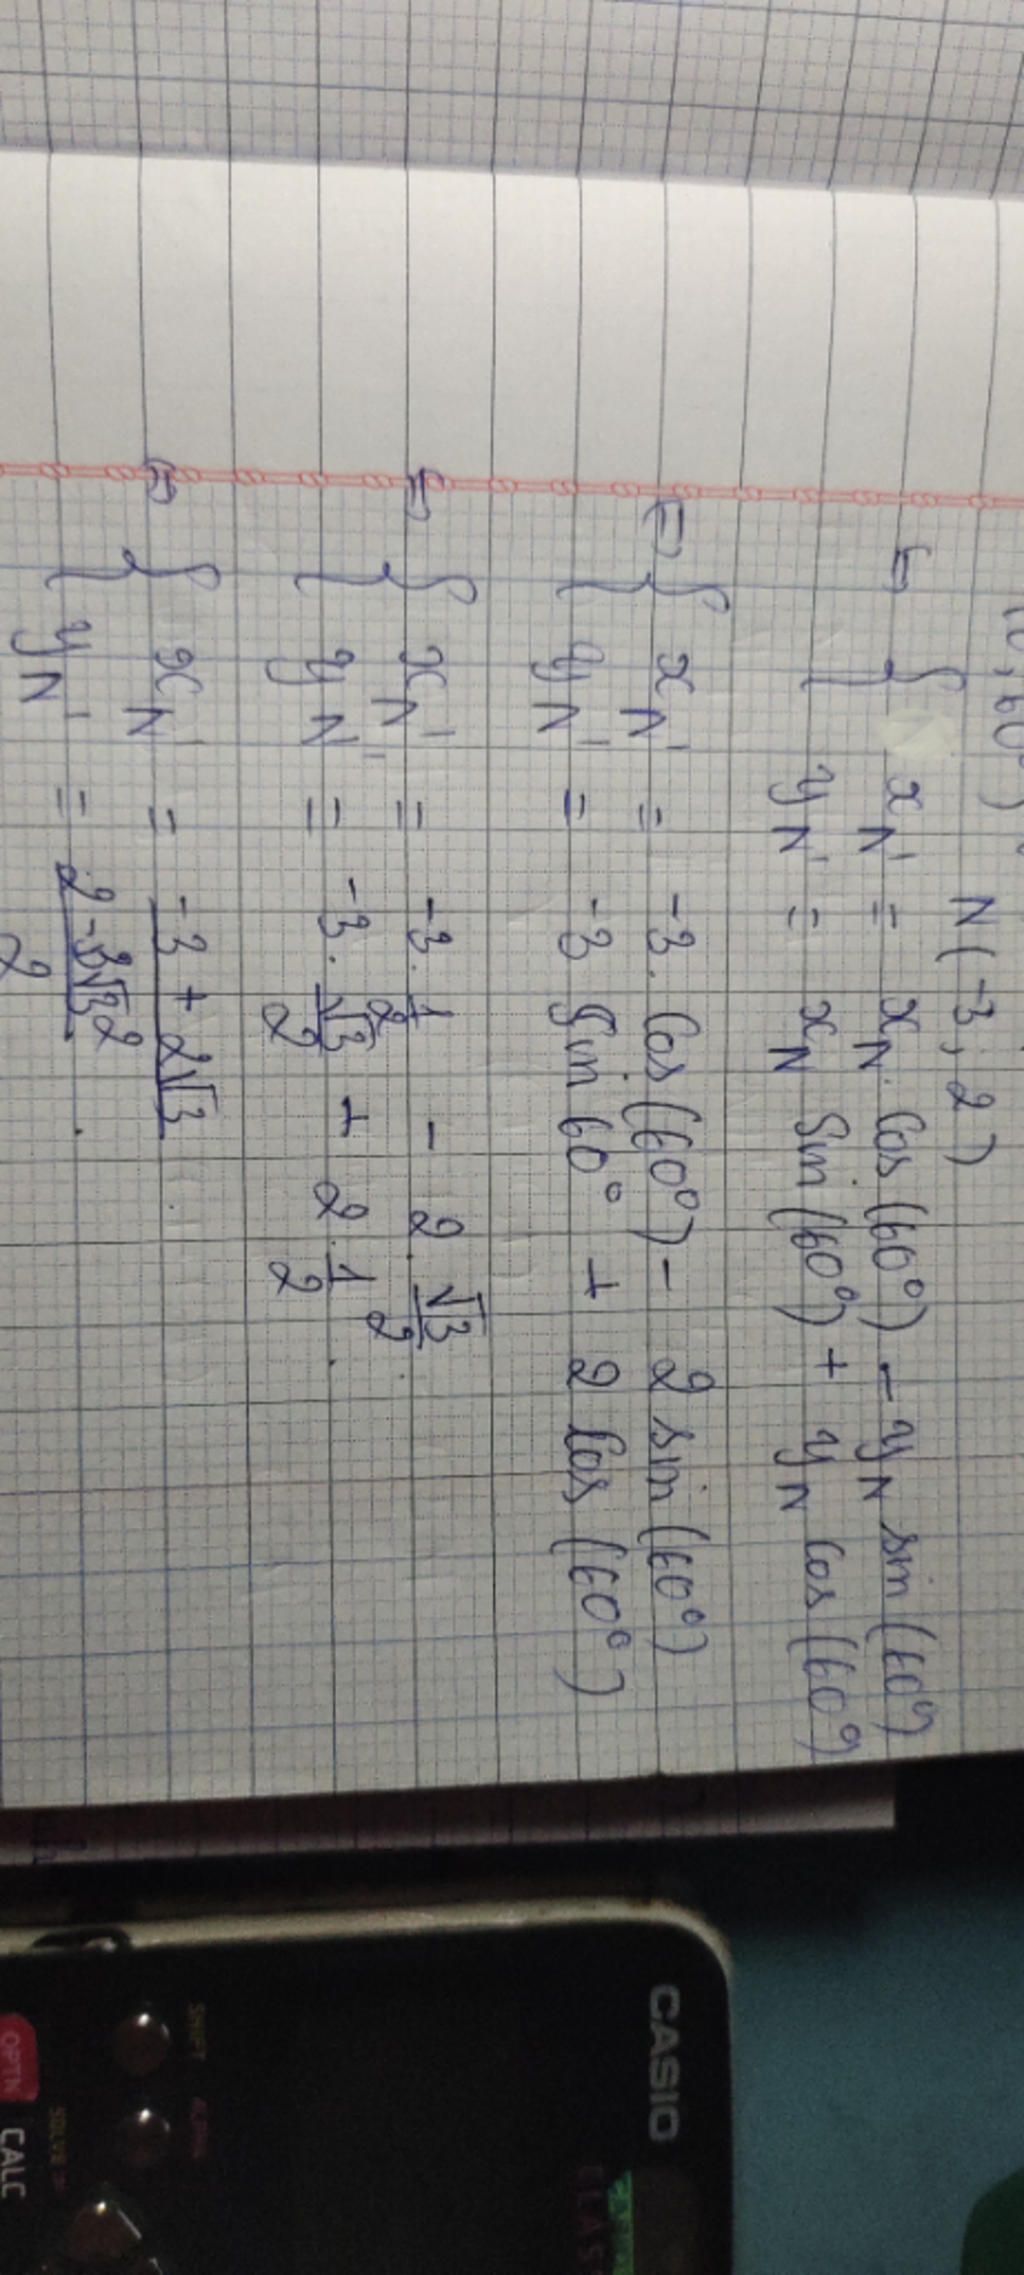 (0, 60°) : N(-3, 2)
⇒ { x_N' = x_N . Cos(60°) - y_N sin(60°)
y_N' = x_N Sin(60°) + y_N Cos(60°)
⇔ { x_N' = -3. Cos(60°) - 2 sin(60°)
y_N' = -3 Sin 60° + 2 Cos(60°)
⇔ { x_N' = -3. 1/2 - 2. √3/2
y_N' = -3. √3/2 + 2. 1/2 .
⇔ { x_N' = -3 + 2√3 / 2
y_N' = 2 - 3√3 / 2 .
CASIO
CLAS
SHIFT ALPHA
OPTN CALC
SOLVE =